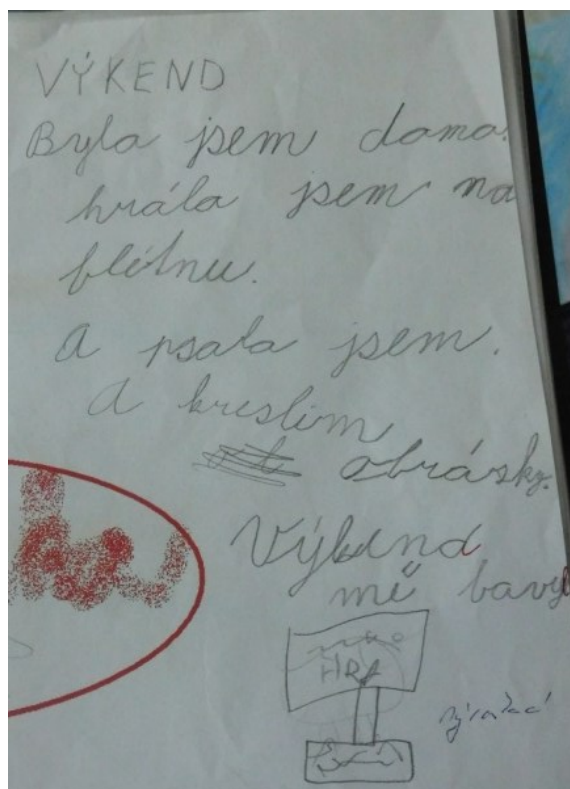 VÝKEND
Byla jsem doma.
hrála jsem na
flétnu.
A psala jsem.
A kreslim
obrásky.
Výkend
mě bavyl
HRA